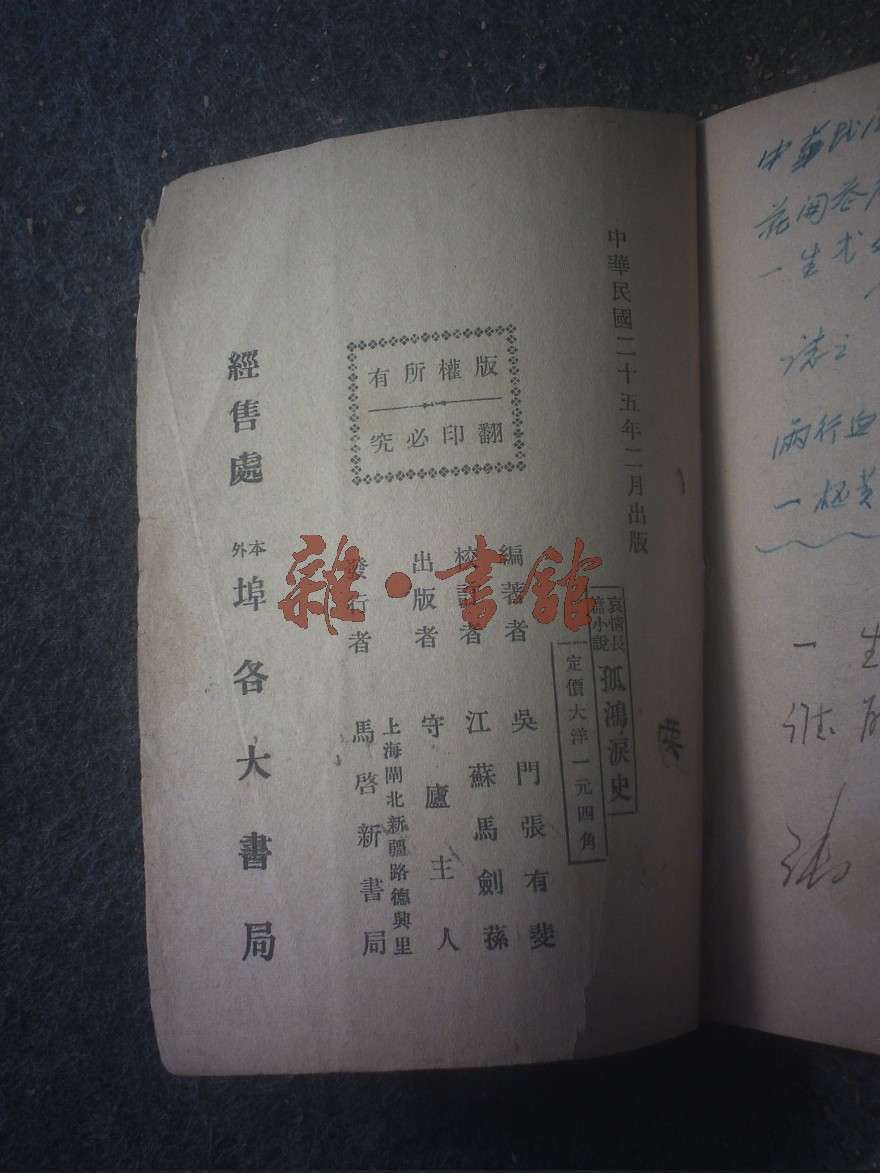 中華民國二十五年二月出版
哀情長
篇小說
孤鴻淚史
定價大洋一元四角
版權所有
翻印必究
編著者 吳門張有斐
校訂者 江蘇馬劍蓀
出版者 守廬主人
發行者 上海閘北新疆路德興里
馬啓新書局
經售處 本外埠各大書局
雜·書館
花開
一生
兩行血
一生